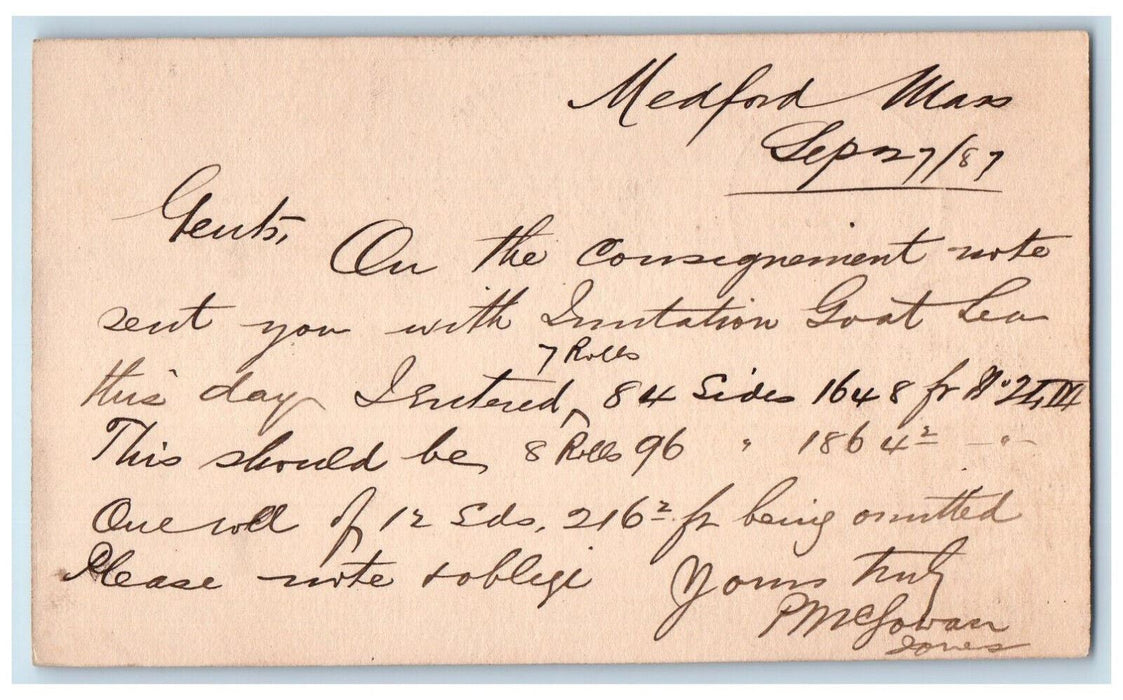 Medford Mass
Sep 27/87
Gents,
On the Consignement note
sent you with Imitation Goat Lea
this day I entered 7 Rolls 84 Sides 1648 fr No 2
This should be 8 Rolls 96 " 1864 2 — " —
One roll of 12 Sds. 216 2 fr being omitted
Please note & oblige Yours truly
P McGowan